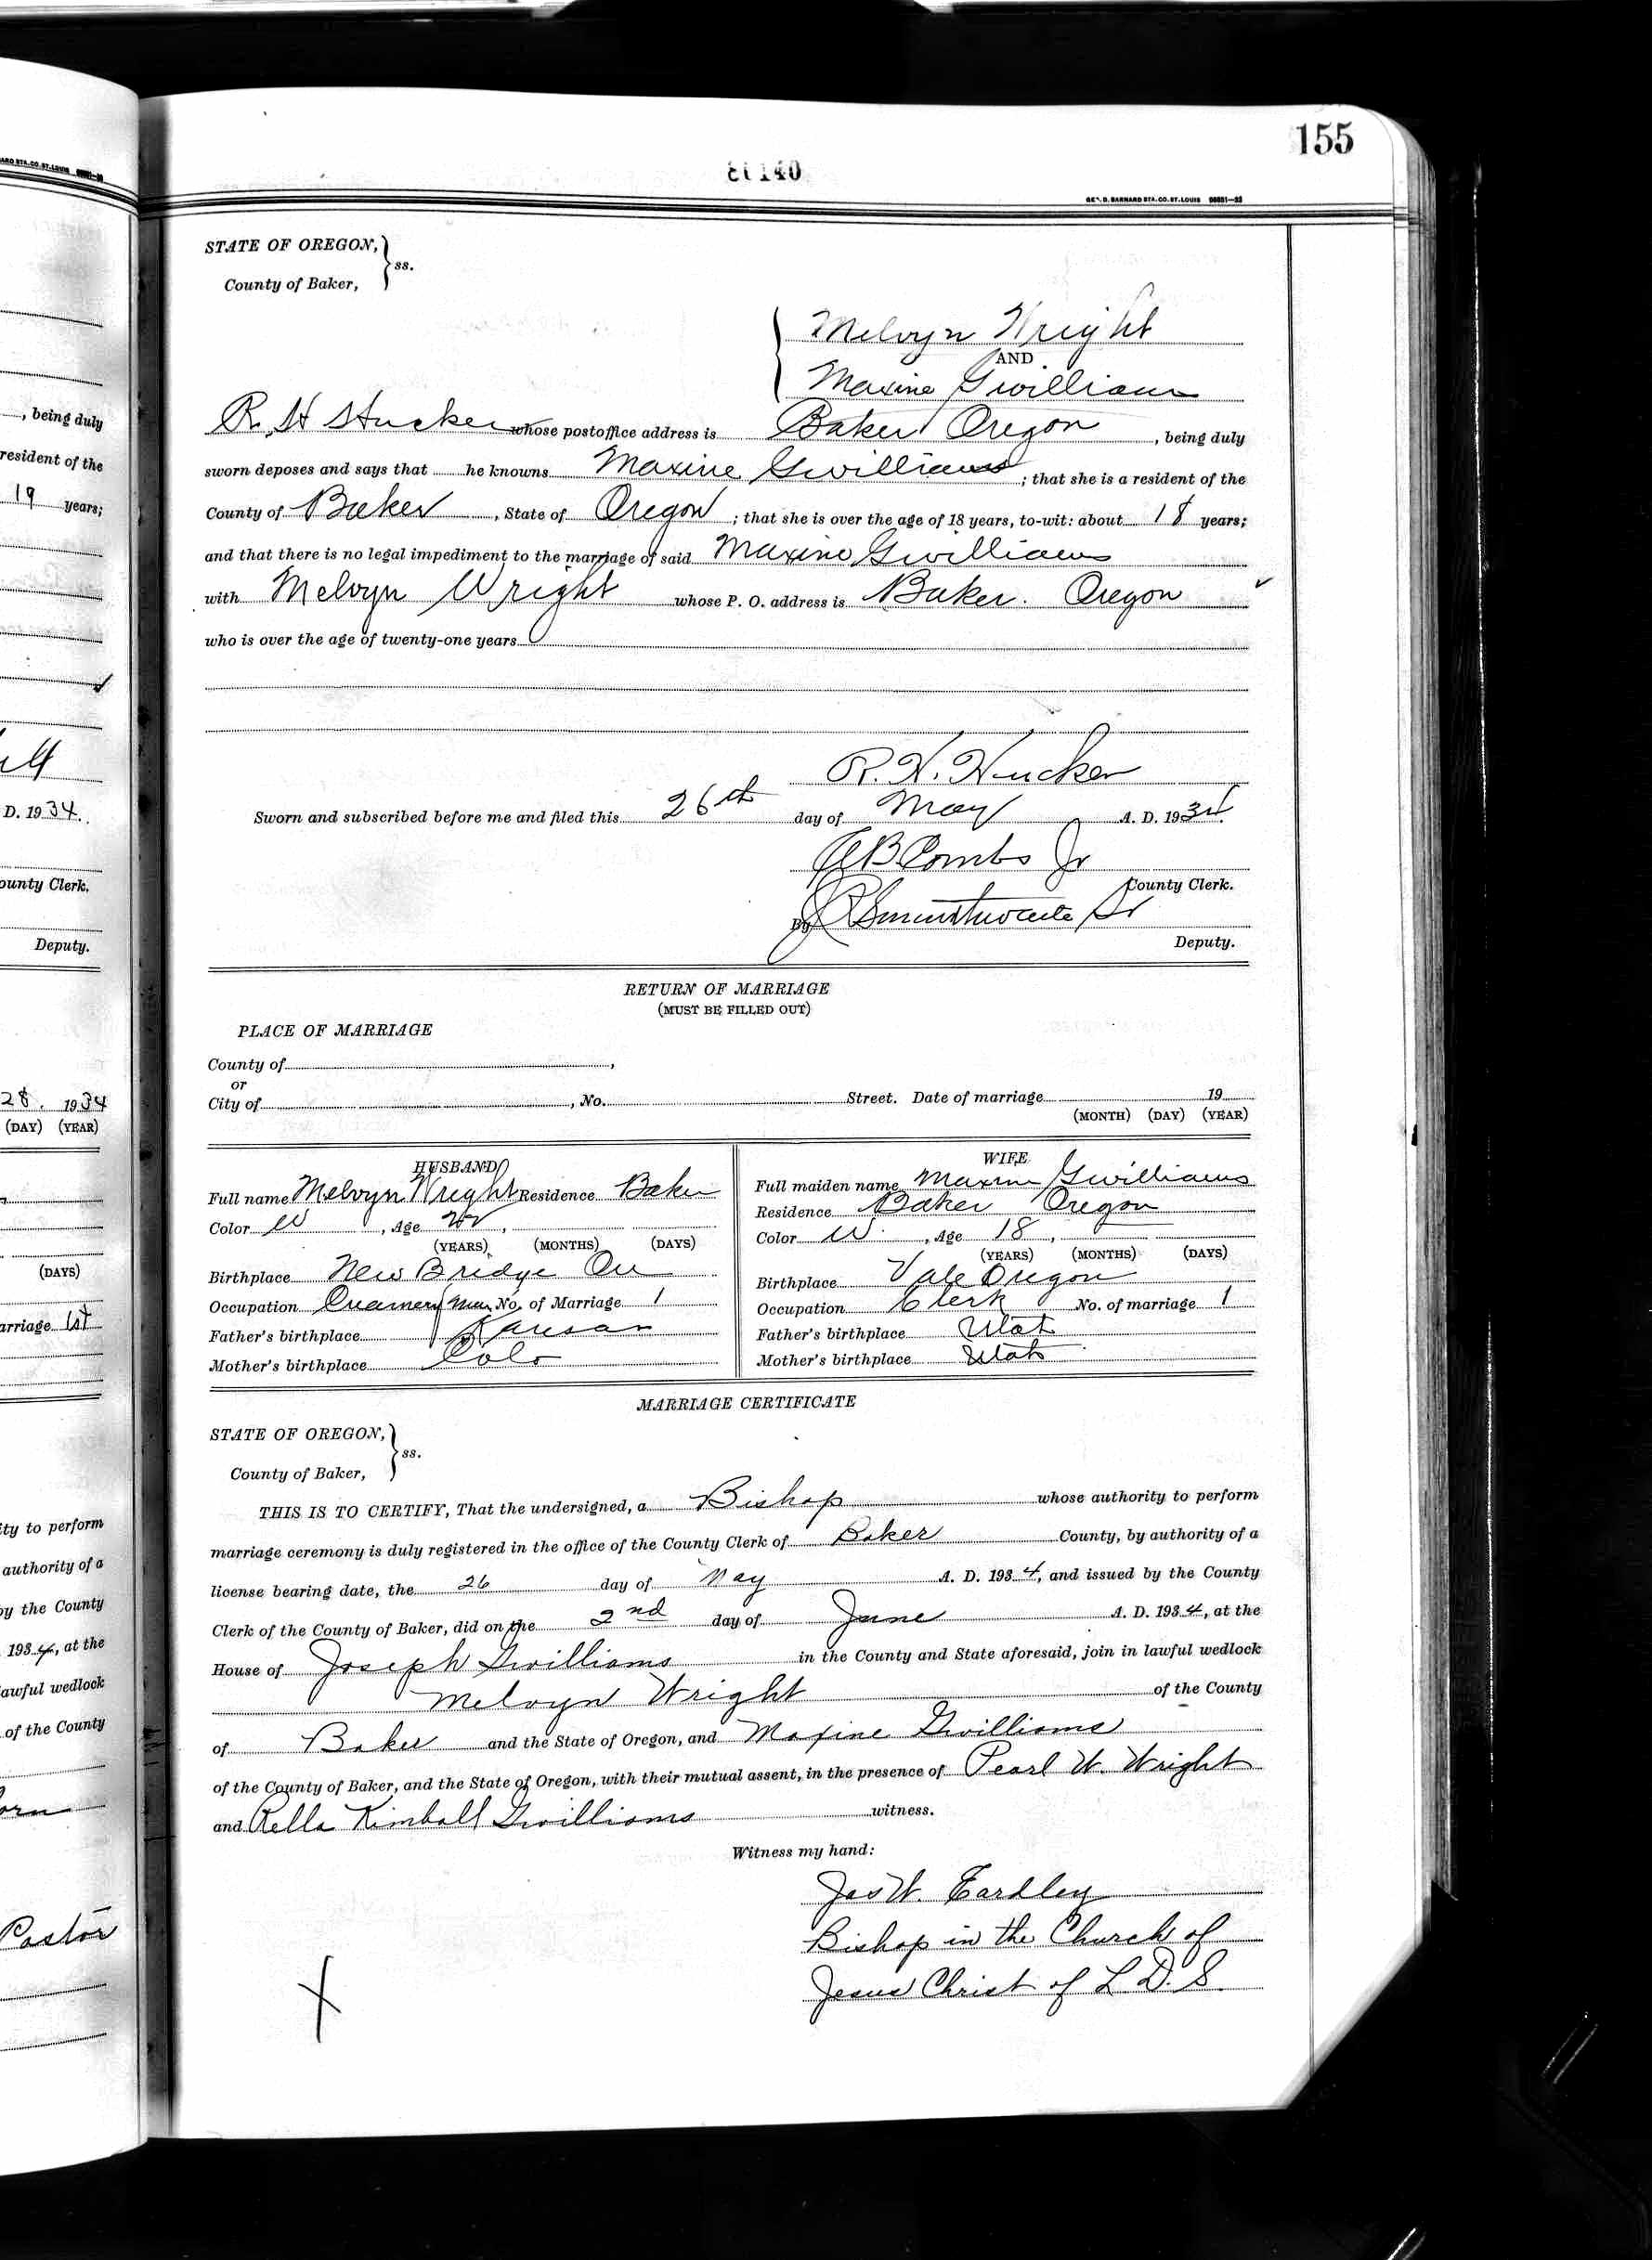 155
GEO. D. BARNARD STA. CO. ST. LOUIS
STATE OF OREGON,
ss.
County of Baker,
Melvyn Wright
AND
Maxine Gwilliams
R. H Hucker whose postoffice address is Baker Oregon, being duly
sworn deposes and says that he knows Maxine Gwilliams; that she is a resident of the
County of Baker, State of Oregon; that she is over the age of 18 years, to-wit: about 18 years;
and that there is no legal impediment to the marriage of said Maxine Gwilliams
with Melvyn Wright whose P. O. address is Baker. Oregon
who is over the age of twenty-one years
R. H. Hucker
Sworn and subscribed before me and filed this 26th day of May A. D. 1934.
AB Combs Jr
County Clerk.
By
Deputy.
RETURN OF MARRIAGE
(MUST BE FILLED OUT)
PLACE OF MARRIAGE
County of,
or
City of, No. Street. Date of marriage 19
(MONTH) (DAY) (YEAR)
HUSBAND
Full name Melvyn Wright Residence Baker
Color W, Age 22,
(YEARS) (MONTHS) (DAYS)
Birthplace New Bridge Ore
Occupation Creamery Man No. of Marriage 1
Father's birthplace Kansas
Mother's birthplace Colo
WIFE
Full maiden name Maxine Gwilliams
Residence Baker Oregon
Color W., Age 18,
(YEARS) (MONTHS) (DAYS)
Birthplace Vale Oregon
Occupation Clerk No. of marriage 1
Father's birthplace Utah
Mother's birthplace Utah
MARRIAGE CERTIFICATE
STATE OF OREGON,
ss.
County of Baker,
THIS IS TO CERTIFY, That the undersigned, a Bishop whose authority to perform
marriage ceremony is duly registered in the office of the County Clerk of Baker County, by authority of a
license bearing date, the 26 day of May A. D. 1934, and issued by the County
Clerk of the County of Baker, did on the 2nd day of June A. D. 1934, at the
House of Joseph Gwilliams in the County and State aforesaid, join in lawful wedlock
Melvyn Wright of the County
of Baker and the State of Oregon, and Maxine Gwilliams
of the County of Baker, and the State of Oregon, with their mutual assent, in the presence of Pearl W. Wright
and Rella Kimball Gwilliams witness.
Witness my hand:
Jas W. Eardley
Bishop in the Church of
Jesus Christ of L. D. S.